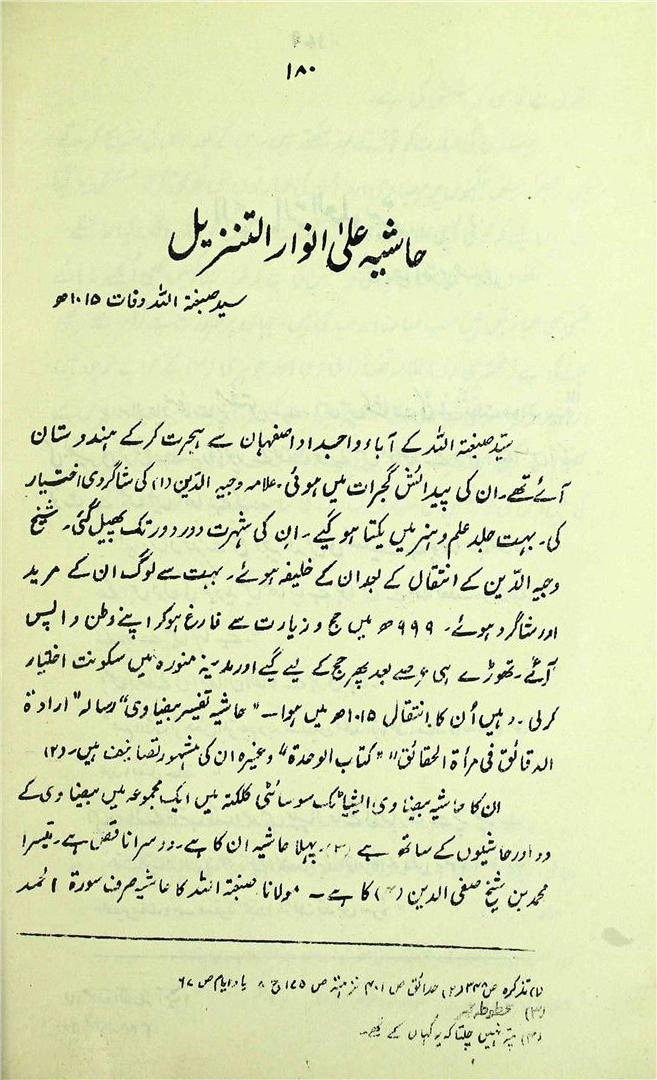 ۱۸۰
حاشیہ علیٰ انوار التنزیل
سید صبغۃ اللہ وفات ۱۰۱۵ھ
سیّد صبغۃ اللہ کے آباء و اجداد اصفہان سے ہجرت کرکے ہندوستان
آئے تھے۔ ان کی پیدائش گجرات میں ہوئی۔ علامہ وجیہ الدّین (۱) کی شاگردی اختیار
کی۔ بہت جلد علم و ہنر میں یکتا ہوگیے۔ ان کی شہرت دور دور تک پھیل گئی۔ شیخ
وجیہ الدّین کے انتقال کے بعد ان کے خلیفہ ہوئے۔ بہت سے لوگ ان کے مرید
اور شاگرد ہوئے۔ ۹۹۹ھ میں حج و زیارت سے فارغ ہوکر اپنے وطن واپس
آئے۔ تھوڑے ہی عرصے بعد پھر حج کے لیے گیے اور مدینہ منورہ میں سکونت اختیار
کرلی۔ وہیں اُن کا انتقال ۱۰۱۵ھ میں ہوا۔ "حاشیہ تفسیر بیضاوی" رسالہ "ارادۃ
الدقائق فی مرأۃ الحقائق" "کتاب الوحدۃ" وغیرہ ان کی مشہور تصانیف ہیں۔ (۲)
ان کا حاشیہ بیضاوی، ایشیاٹک سوسائٹی کلکتہ میں ایک مجموعہ میں بیضاوی کے
دو اور حاشیوں کے ساتھ ہے (۳)۔ پہلا حاشیہ ان کا ہے۔ دوسرا ناقص ہے۔ تیسرا
محمد بن شیخ صفی الدین (۴) کا ہے۔ مولانا صبغۃ اللہ کا حاشیہ صرف سورۃ الحمد
(۱) تذکرہ ص ۳۳۸ (۲) حدائق ص ۴۰۱ نزہتہ ص ۱۷۵ ج ۸ یاد ایام ص ۶۷
(۳) مخطوطہ نمبر
(۴) پتہ نہیں چلتا کہ یہ کہاں کے تھے۔